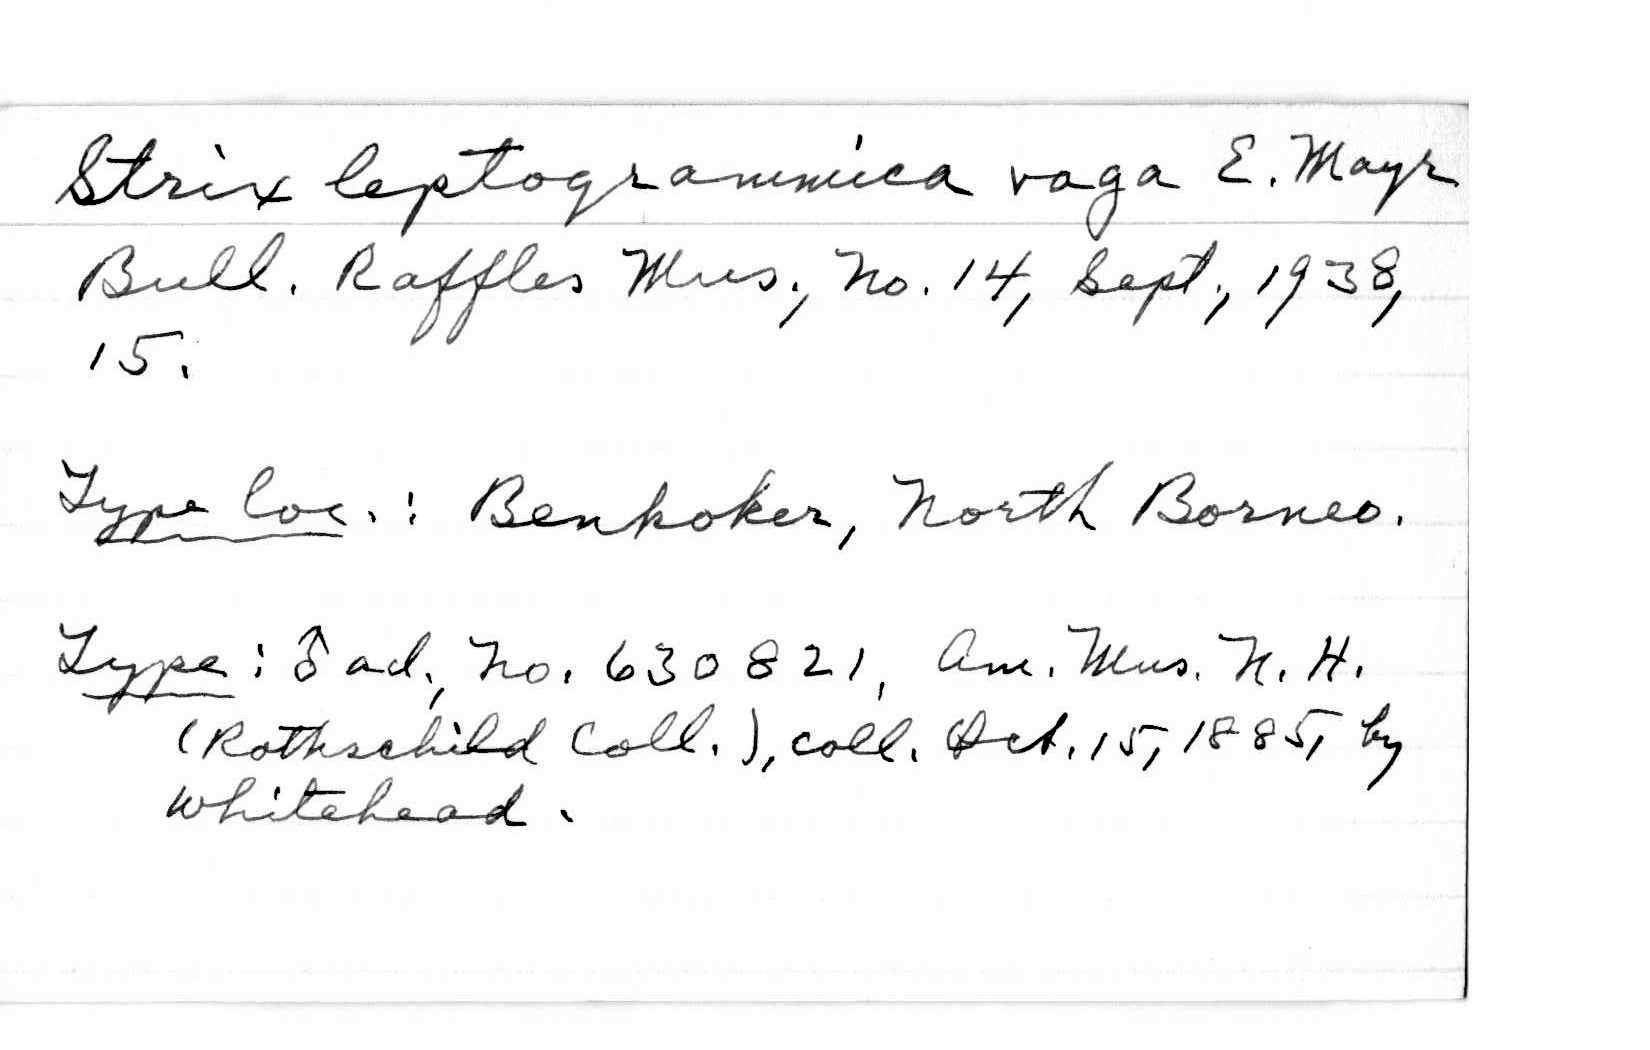 Strix leptogrammica vaga E. Mayr
Bull. Raffles Mus., No. 14, Sept., 1938,
15.
Type loc.: Benkoker, North Borneo.
Type: ♂ ad., No. 630821, Am. Mus. N. H.
(Rothschild Coll.), coll. Oct. 15, 1885, by
Whitehead.